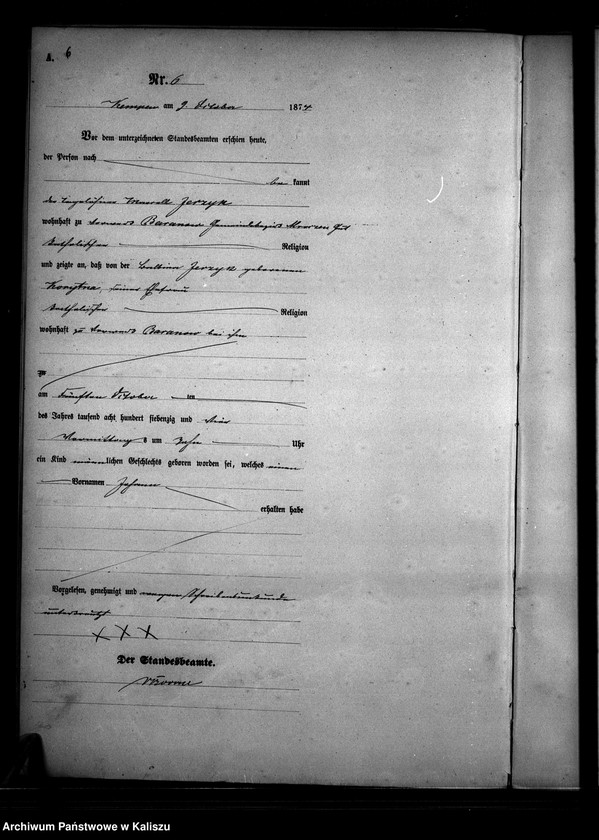 A. 6
Nr. 6
Kempen am 9 October 1874
Vor dem unterzeichneten Standesbeamten erschien heute,
der Person nach
be kannt
der Tagelöhner Jerzyk
wohnhaft zu Vorwerk Baranow Gemeindebezirk
katholischer Religion
und zeigte an, daß von der Jerzyk geborenen
Korytna, seiner Ehefrau
katholischer Religion
wohnhaft zu Vorwerk Baranow bei ihm
zu
am fünften October ten
des Jahres tausend acht hundert siebenzig und vier
Vormittags um zehn Uhr
ein Kind männlichen Geschlechts geboren worden sei, welches einen
Vornamen Johann
erhalten habe
Vorgelesen, genehmigt und wegen Schreibensunkunde
unterkreuzt
XXX
Der Standesbeamte.
Archiwum Państwowe w Kaliszu